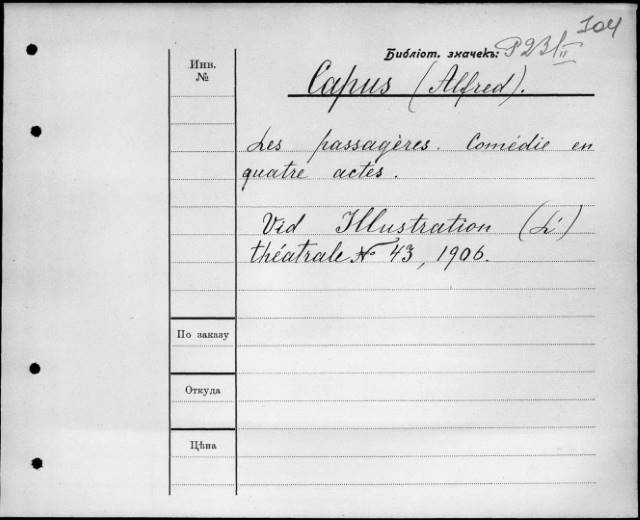 104
Библіот. значекъ: P23/II
Инв.
№
Capus (Alfred).
Les passagères. Comédie en
quatre actes.
Vid Illustration (L')
théatrale № 43, 1906.
По заказу
Откуда
Цѣна